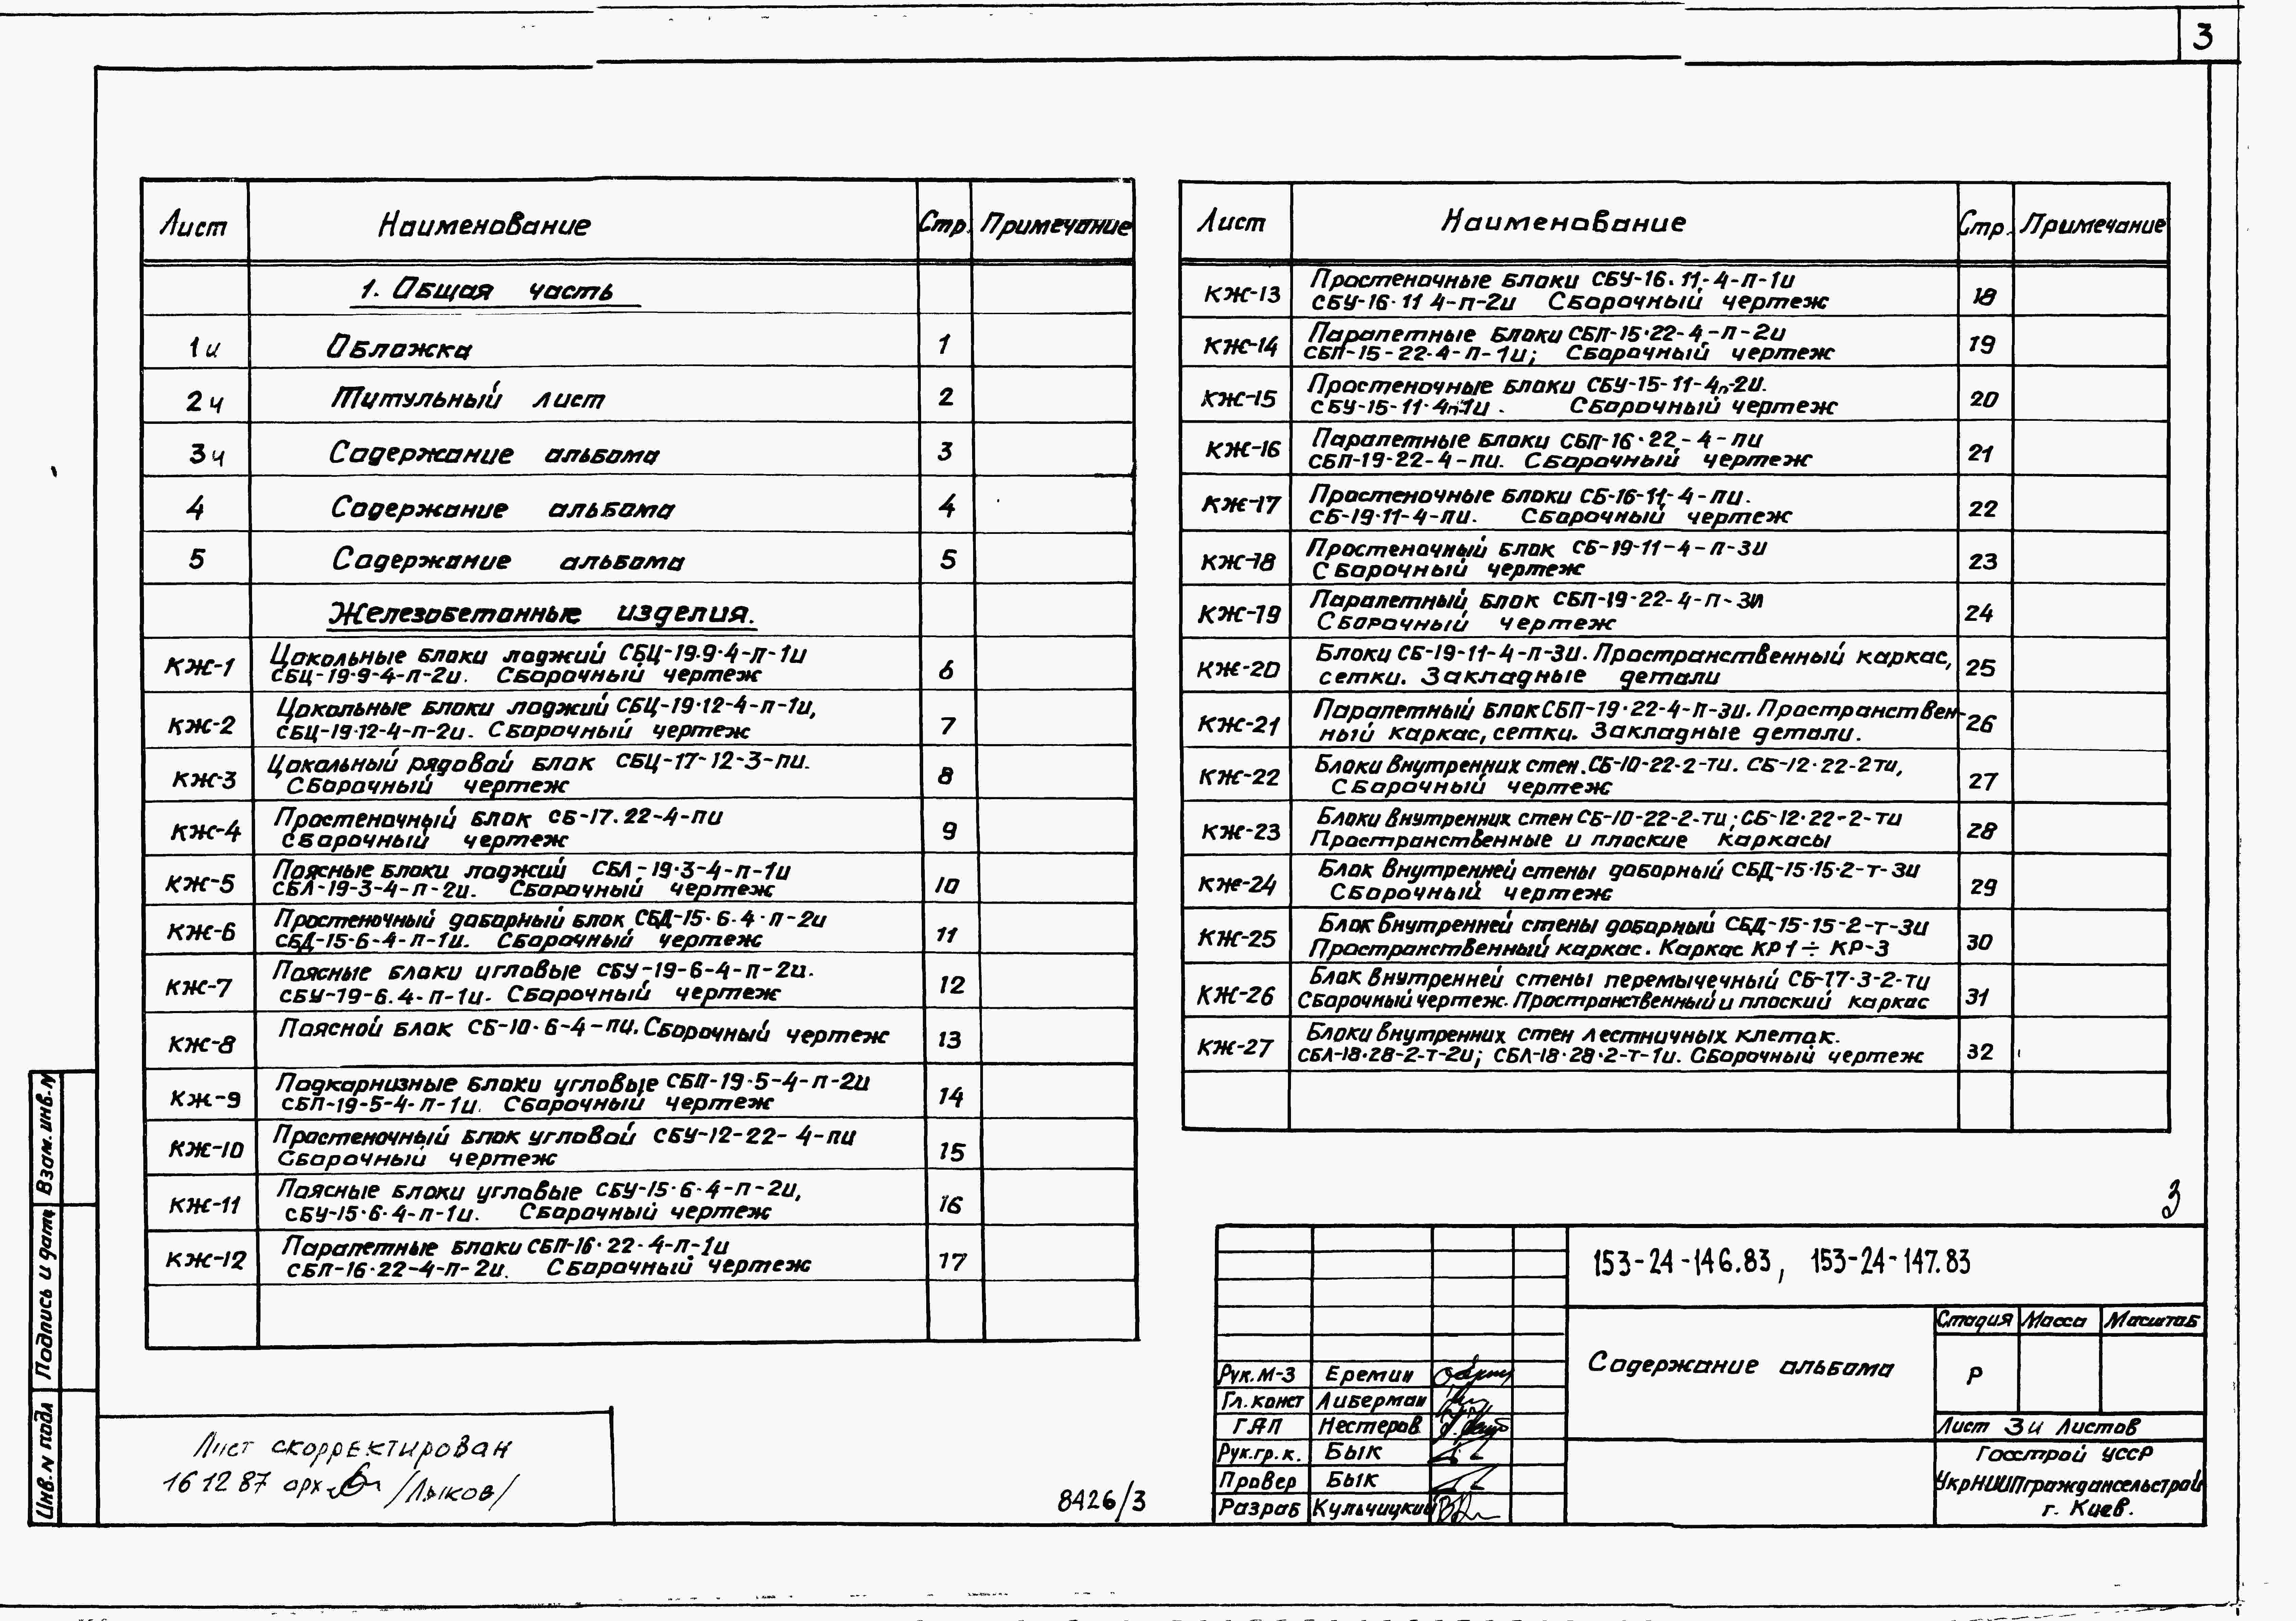 3
Лист Наименование Стр. Примечание
1. Общая часть
1и Обложка 1
2и Титульный лист 2
3и Содержание альбома 3
4 Содержание альбома 4
5 Содержание альбома 5
Железобетонные изделия.
КЖ-1 Цокольные блоки лоджий СБЦ-19.9-4-п-1и 6
СБЦ-19-9-4-п-2и. Сборочный чертеж
КЖ-2 Цокольные блоки лоджий СБЦ-19·12-4-п-1и, 7
СБЦ-19·12-4-п-2и. Сборочный чертеж
КЖ-3 Цокольный рядовой блок СБЦ-17-12-3-пи. 8
Сборочный чертеж
КЖ-4 Простеночный блок СБ-17.22-4-пи 9
Сборочный чертеж
КЖ-5 Поясные блоки лоджий СБЛ-19·3-4-п-1и 10
СБЛ-19-3-4-п-2и. Сборочный чертеж
КЖ-6 Простеночный доборный блок СБД-15·6·4·п-2и 11
СБД-15-6-4-п-1и. Сборочный чертеж
КЖ-7 Поясные блоки угловые СБУ-19-6-4-п-2и. 12
СБУ-19-6.4-п-1и. Сборочный чертеж
КЖ-8 Поясной блок СБ-10·6-4-пи. Сборочный чертеж 13
КЖ-9 Подкарнизные блоки угловые СБП-19·5-4-п-2и 14
СБП-19-5-4-п-1и. Сборочный чертеж
КЖ-10 Простеночный блок угловой СБУ-12-22-4-пи 15
Сборочный чертеж
КЖ-11 Поясные блоки угловые СБУ-15·6·4-п-2и, 16
СБУ-15·6·4-п-1и. Сборочный чертеж
КЖ-12 Парапетные блоки СБП-16·22-4-п-1и 17
СБП-16·22-4-п-2и. Сборочный чертеж
Лист Наименование Стр. Примечание
КЖ-13 Простеночные блоки СБУ-16.11-4-п-1и 18
СБУ-16·11 4-п-2и Сборочный чертеж
КЖ-14 Парапетные блоки СБП-15·22-4-п-2и 19
СБП-15-22·4-п-1и; Сборочный чертеж
КЖ-15 Простеночные блоки СБУ-15-11-4п-2и. 20
СБУ-15-11-4п-1и. Сборочный чертеж
КЖ-16 Парапетные блоки СБП-16·22-4-пи 21
СБП-19-22-4-пи. Сборочный чертеж
КЖ-17 Простеночные блоки СБ-16-11-4-пи. 22
СБ-19·11-4-пи. Сборочный чертеж
КЖ-18 Простеночный блок СБ-19-11-4-п-3и 23
Сборочный чертеж
КЖ-19 Парапетный блок СБП-19·22-4-п-3и 24
Сборочный чертеж
КЖ-20 Блоки СБ-19-11-4-п-3и. Пространственный каркас, 25
сетки. Закладные детали
КЖ-21 Парапетный блок СБП-19·22-4-п-3и. Пространствен- 26
ный каркас, сетки. Закладные детали.
КЖ-22 Блоки внутренних стен. СБ-10-22-2-ти. СБ-12·22-2ти, 27
Сборочный чертеж
КЖ-23 Блоки внутренних стен СБ-10-22-2-ти; СБ-12·22-2-ти 28
Пространственные и плоские каркасы
КЖ-24 Блок внутренней стены доборный СБД-15·15·2-т-3и 29
Сборочный чертеж
КЖ-25 Блок внутренней стены доборный СБД-15-15-2-т-3и 30
Пространственный каркас. Каркас КР1÷КР-3
КЖ-26 Блок внутренней стены перемычечный СБ-17-3-2-ти 31
Сборочный чертеж. Пространственный и плоский каркас
КЖ-27 Блоки внутренних стен лестничных клеток. 32
СБЛ-18·28-2-т-2и; СБЛ-18·28·2-т-1и. Сборочный чертеж
3
153-24-146.83, 153-24-147.83
Содержание альбома
Стадия Масса Масштаб
Р
Лист 3и Листов
Госстрой УССР
УкрНИИПграждансельстрой
г. Киев.
Рук. М-3 Еремин
Гл. конст Либерман
ГАП Нестеров
Рук. гр. к. Бык
Провер Бык
Разраб Кульчицкий
8426/3
Лист скорректирован
16 12 87 арх. /Лыков/
Инв. N подл Подпись и дата Взам. инв. N